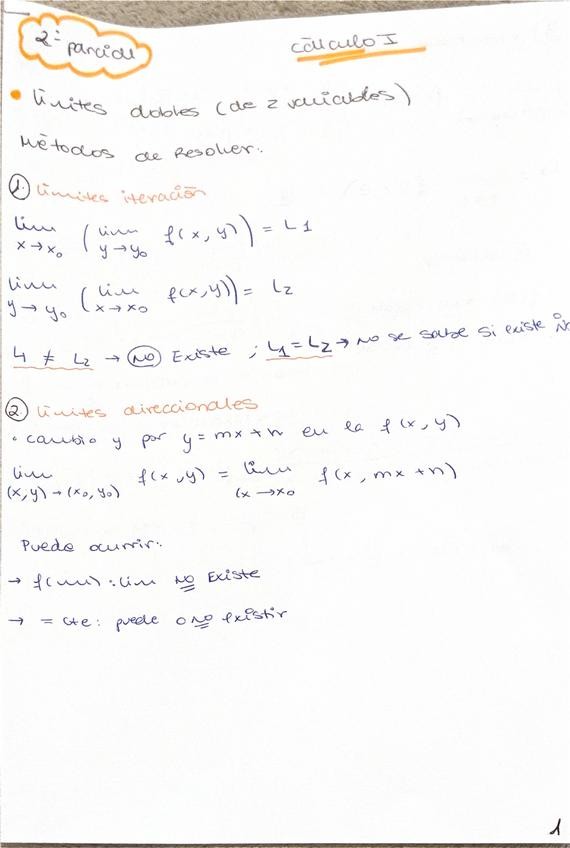 2º parcial
Cálculo I
• Límites dobles (de 2 variables)
Métodos de Resolver:
① Límites iteración
lim x→x₀ ( lim y→y₀ f(x,y)) = L1
lim y→y₀ ( lim x→x₀ f(x,y)) = L2
L1 ≠ L2 → NO Existe ; L1 = L2 → No se sabe si existe o No
② Límites direccionales
• cambio y por y = mx + n en la f(x,y)
lim (x,y)→(x₀,y₀) f(x,y) = lim (x→x₀ f(x, mx+n)
Puede ocurrir:
→ f(m) : lim NO Existe
→ = cte: puede o no existir
1